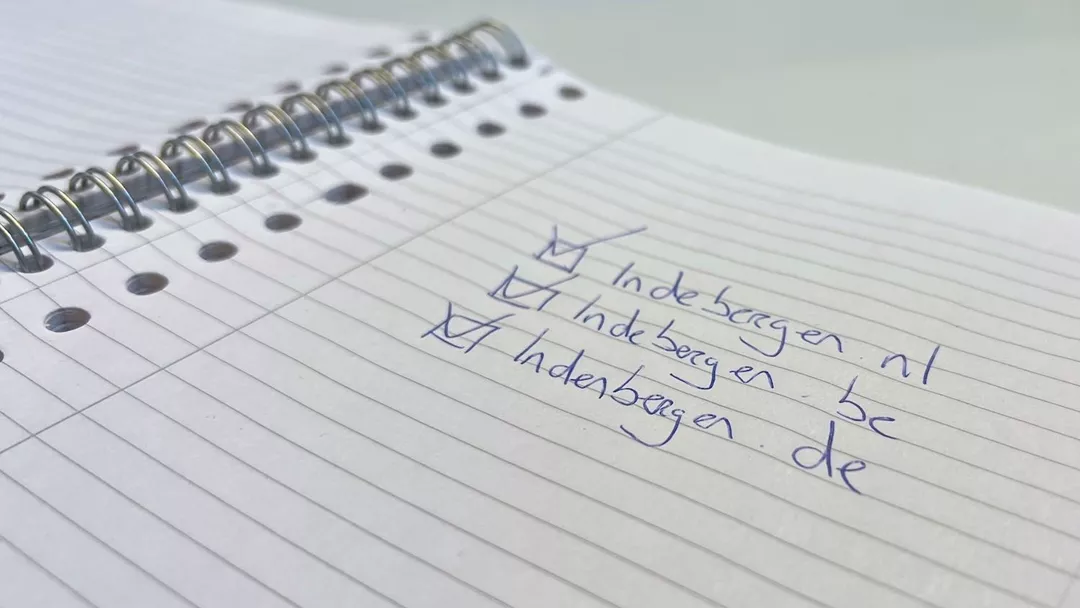 Indebergen.nl
Indebergen be
Indenbergen.de